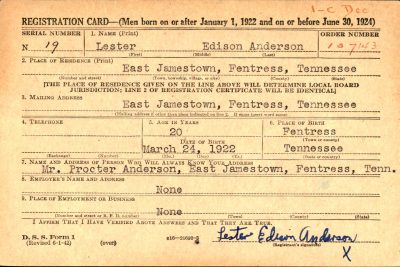 1-C Dec
REGISTRATION CARD—(Men born on or after January 1, 1922 and on or before June 30, 1924)
SERIAL NUMBER 1. NAME (Print) ORDER NUMBER
N 19 Lester Edison Anderson
(First) (Middle) (Last)
2. PLACE OF RESIDENCE (Print)
East Jamestown, Fentress, Tennessee
(Number and street) (Town, township, village, or city) (County) (State)
[THE PLACE OF RESIDENCE GIVEN ON THE LINE ABOVE WILL DETERMINE LOCAL BOARD
JURISDICTION; LINE 2 OF REGISTRATION CERTIFICATE WILL BE IDENTICAL]
3. MAILING ADDRESS
East Jamestown, Fentress, Tennessee
(Mailing address if other than place indicated on line 2. If same insert word same)
4. TELEPHONE 5. AGE IN YEARS 6. PLACE OF BIRTH
20 Fentress
DATE OF BIRTH (Town or county)
March 24, 1922 Tennessee
(Exchange) (Number) (Mo.) (Day) (Yr.) (State or country)
7. NAME AND ADDRESS OF PERSON WHO WILL ALWAYS KNOW YOUR ADDRESS
Mr. Procter Anderson, East Jamestown, Fentress, Tenn.
8. EMPLOYER'S NAME AND ADDRESS
None
9. PLACE OF EMPLOYMENT OR BUSINESS
None
(Number and street or R. F. D. number) (Town) (County) (State)
I AFFIRM THAT I HAVE VERIFIED ABOVE ANSWERS AND THAT THEY ARE TRUE.
D. S. S. Form 1
(Revised 6-1-42) (over) Lester Edison Anderson
(Registrant's signature)
X